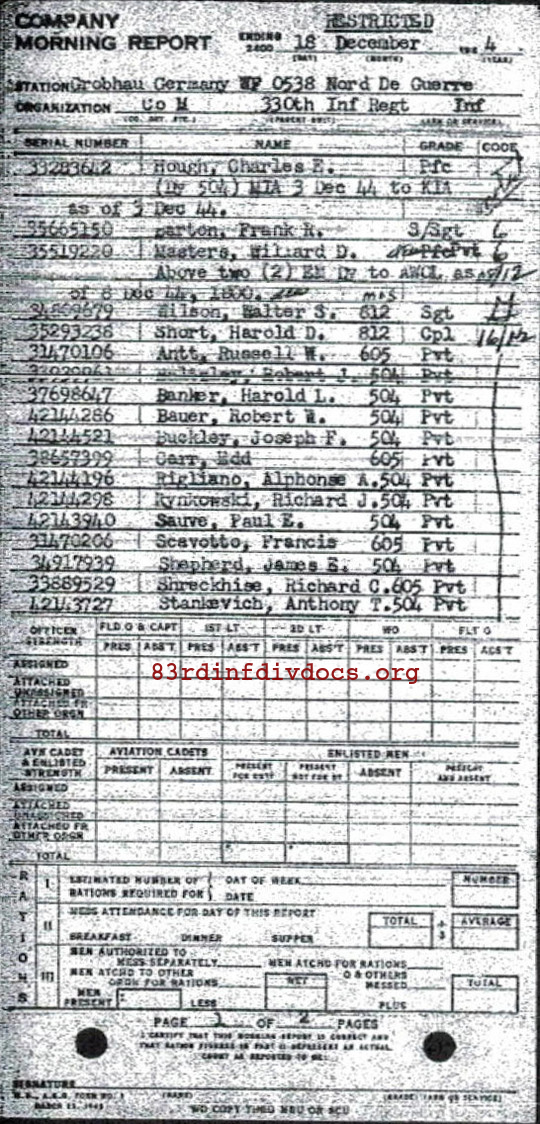 COMPANY RESTRICTED
MORNING REPORT ENDING 2400 18 December 4
(DAY) (MONTH) (YEAR)
STATION Grobhau Germany WF 0538 Nord De Guerre
ORGANIZATION Co M 330th Inf Regt Inf
(PARENT UNIT) (ARM OR SERVICE)
SERIAL NUMBER NAME GRADE CODE
33283642 Hough, Charles E. Pfc
(Dy 504) MIA 3 Dec 44 to KIA
as of 3 Dec 44.
35665150 Barton, Frank R. S/Sgt 6
35519220 Masters, Williard D. Pvt 6
Above two (2) EM Dy to AWOL as
of 8 Dec 44, 1800. MOS
34809679 Wilson, Walter S. 812 Sgt
35293238 Short, Harold D. 812 Cpl 16/12
31470106 Antt, Russell W. 605 Pvt
504 Pvt
37698647 Banker, Harold L. 504 Pvt
42144286 Bauer, Robert W. 504 Pvt
42144521 Buckley, Joseph F. 504 Pvt
38657399 Carr, Edd 605 Pvt
42144196 Rigliano, Alphonse A. 504 Pvt
42144298 Rynkowski, Richard J. 504 Pvt
42143940 Sauve, Paul E. 504 Pvt
31470206 Scavotto, Francis 605 Pvt
34917939 Shepherd, James E. 504 Pvt
33889529 Shreckhise, Richard C. 605 Pvt
42143727 Stankevich, Anthony T. 504 Pvt
OFFICER STRENGTH FLD O & CAPT 1ST LT 2D LT WO FLT O
PRES ABS'T PRES ABS'T PRES ABS'T PRES ABS'T PRES ABS'T
ASSIGNED
83rdinfdivdocs.org
ATTACHED UNASSIGNED
ATTACHED FR OTHER ORGN
TOTAL
AVN CADET & ENLISTED STRENGTH AVIATION CADETS ENLISTED MEN
PRESENT ABSENT PRESENT FOR DUTY PRESENT NOT FOR DY ABSENT PRESENT AND ABSENT
ASSIGNED
ATTACHED UNASSIGNED
ATTACHED FR OTHER ORGN
TOTAL
RATIONS
I ESTIMATED NUMBER OF DAY OF WEEK NUMBER
RATIONS REQUIRED FOR DATE
II MESS ATTENDANCE FOR DAY OF THIS REPORT TOTAL ÷ 3 AVERAGE
BREAKFAST DINNER SUPPER
III MEN AUTHORIZED TO MESS SEPARATELY MEN ATCHD FOR RATIONS
MEN ATCHD TO OTHER ORGN FOR RATIONS NET O & OTHERS MESSED TOTAL
MEN PRESENT LESS PLUS
PAGE 1 OF 2 PAGES
I CERTIFY THAT THIS MORNING REPORT IS CORRECT AND
THAT RATION FIGURES IN PART II REPRESENT AN ACTUAL
COUNT AS REPORTED TO ME:
SIGNATURE
W.D., A.G.O. FORM NO. 1 (NAME) (GRADE) (ARM OR SERVICE)
MARCH 13, 1943
NO COPY THRU MRU OR SCU